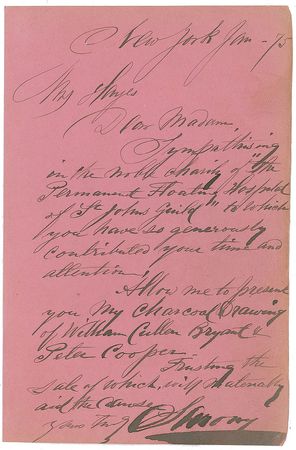 New York Jan - 75
Mrs Hayes
Dear Madam,
Sympathising
in the noble charity of "the
Permanent Floating Hospital
of St Johns Guild" to which
you have so generously
contributed your time and
attention,
Allow me to present
you my charcoal Drawing
of William Cullen Bryant &
Peter Cooper -
Trusting the
sale of which, will materially
aid the cause
yours truly Sarony